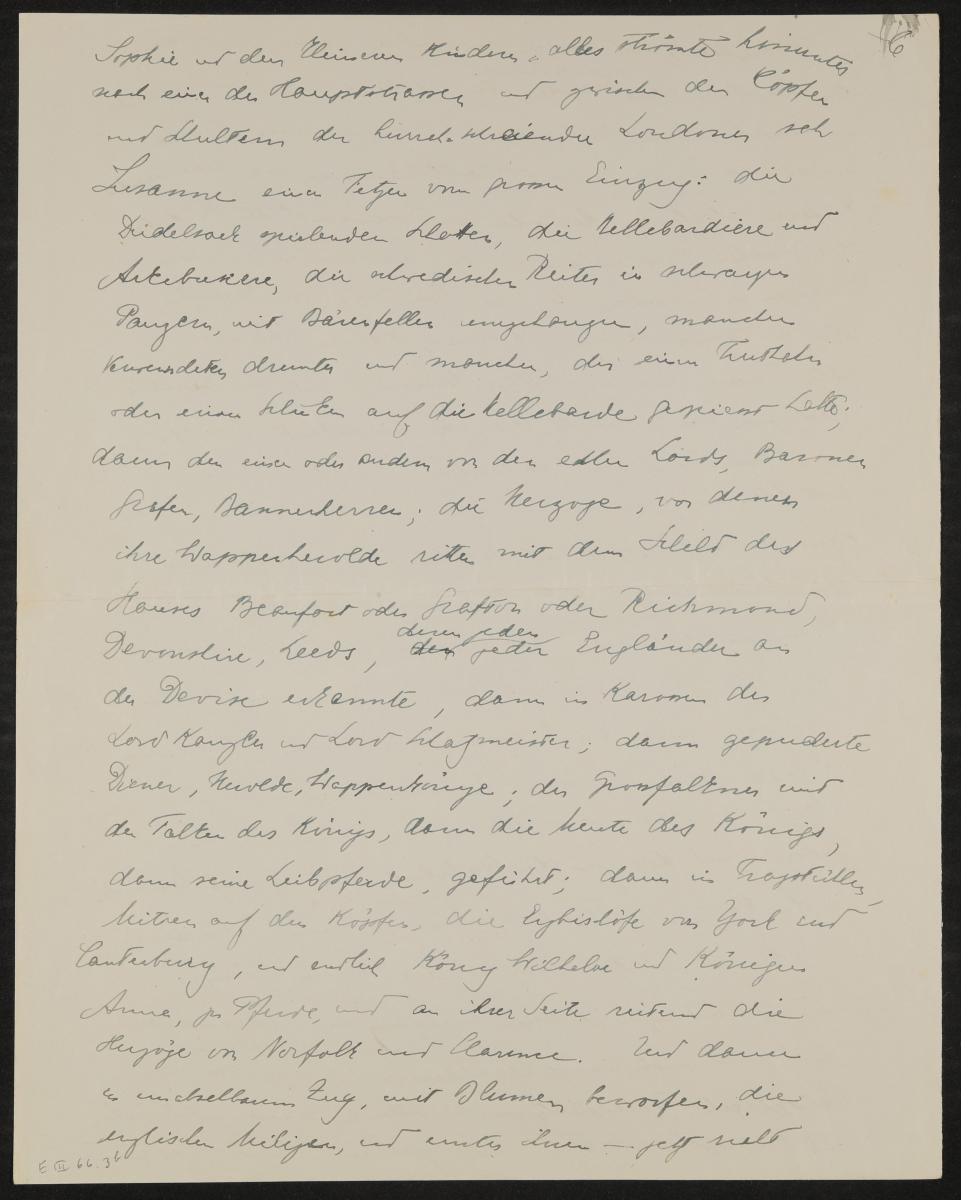 6
Sophie und den kleineren Kindern, alles strömte hinunter
nach einer der Hauptstrassen und zwischen den Köpfen
und Schultern der hurrah schreienden Londoner sah
Susanne einen Fetzen vom grossen Einzug: die
Dudelsack spielenden Schotten, die Hellebardiere und
Arkebusiere, die schwedischen Reiter in schwarzen
Panzern, mit Bärenfellen umgehangen, manchen
Verwundeten drunter und manchen, der einen Truthahn
oder einen Schinken auf die Hellebarde gespiesst hatte;
dann den einen oder andern von den edlen Lords, Baronen
Grafen, Bannerherren; die Herzoge, vor denen
ihre Wappenherolde ritten mit dem Schild des
Hauses Beaufort oder Grafton oder Richmond,
Devonshire, Leeds, deren jeden jeder Engländer an
der Devise erkannte, dann in Karossen der
Lord Kanzler und Lord Schatzmeister; dann gepuderte
Diener, Herolde, Wappenkönige; der Grossfalkner mit
den Falken des Königs, dann die Meute des Königs,
dann seine Leibpferde, geführt; dann in Tragstühlen,
Mitren auf den Köpfen, die Erzbischöfe von York und
Canterbury, und endlich König Wilhelm und Königin
Anna, zu Pferde, und an ihrer Seite reitend die
Herzöge von Norfolk und Clarence. Und dann
in unabsehbarem Zug, mit Blumen beworfen, die
englischen Milizen, und unter ihnen — jetzt hielt
E II 66.36